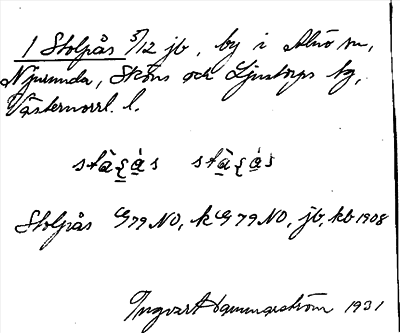 1 Stolpås 5/12 jb, by i Alnö sn,
Njurunda, Sköns och Ljustorps tg,
Västernorrl. l.
Stolpås G79 NO, k G79 NO, jb, kb 1908
Ingvar Hammarström 1931